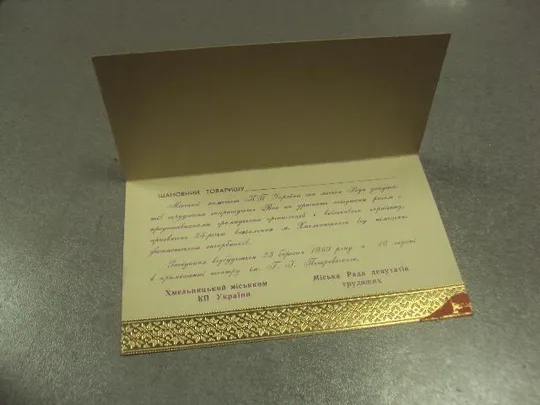 ШАНОВНИЙ ТОВАРИШУ
Міський комітет КП України та міська Рада депута-
тів трудящих запрошують Вас на урочисте засідання разом з
представниками громадських організацій і військового гарнізону,
присвячене 25-річчю визволення м. Хмельницького від німецько-
фашистських загарбників.
Засідання відбудеться 23 березня 1969 року о 16 годині
в приміщенні театру ім. Г. І. Петровського.
Хмельницький міськком
КП України
Міська Рада депутатів
трудящих